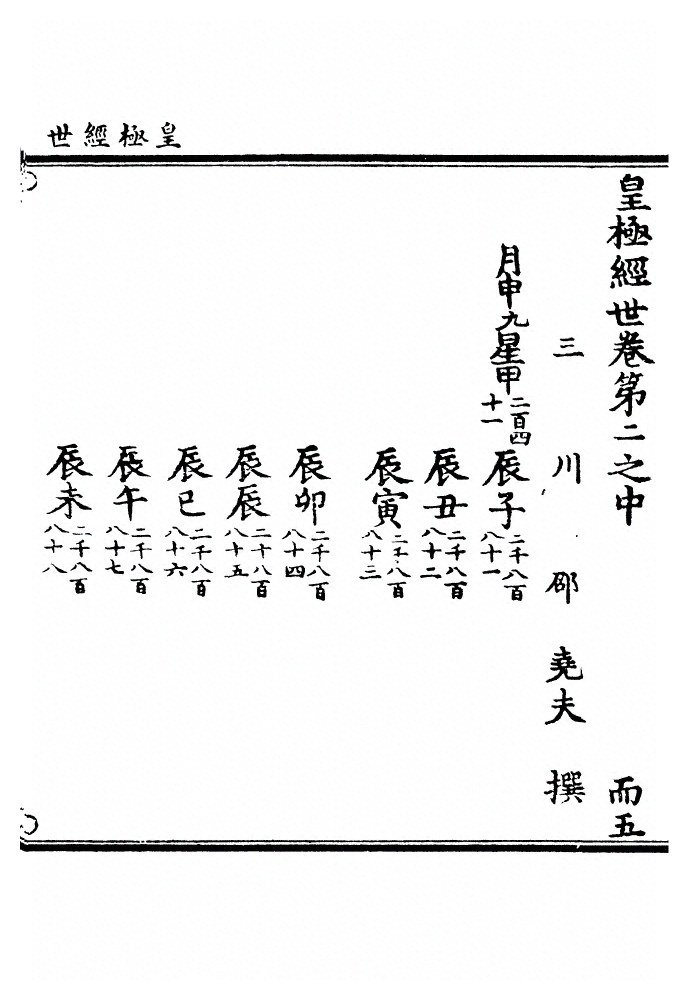 皇極經世
皇極經世卷第二之中 而五
三川邵堯夫撰
月申九星甲二百四十一 辰子二千八百八十一
辰丑二千八百八十二
辰寅二千八百八十三
辰卯二千八百八十四
辰辰二千八百八十五
辰巳二千八百八十六
辰午二千八百八十七
辰未二千八百八十八